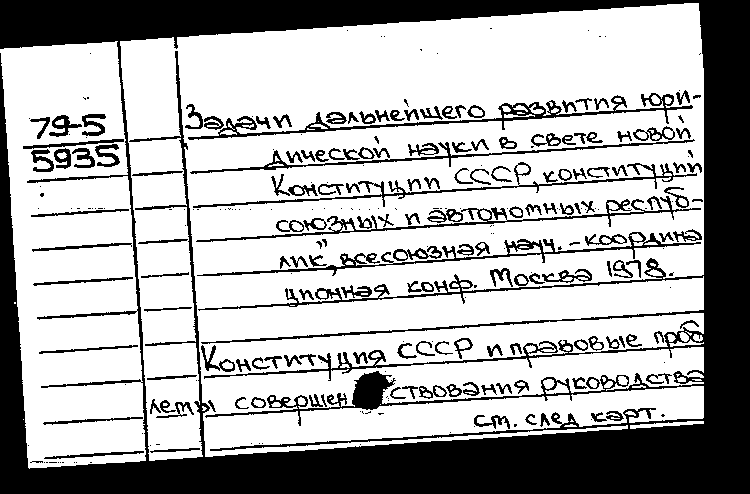 79-5
5935
Задачи дальнейшего развития юри-
дической науки в свете новой
Конституции СССР, конституций
союзных и автономных респуб-
лик", всесоюзная науч.-координа
ционная конф. Москва 1978.
Конституция СССР и правовые проб
лемы совершен ствования руководства
см. след карт.